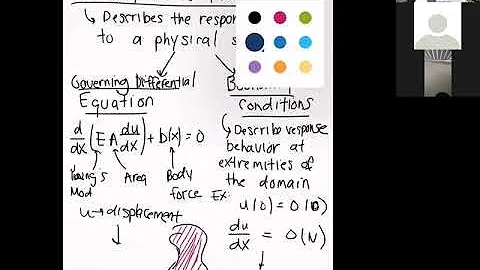 ↳ Describes the respon
to a physical s
Governing Differential
Equation
d/dx (EA du/dx) + b(x) = 0
Young's Mod
Area
Body force
u → displacement
conditions
↳ Describe response
behavior at
extremities of
the domain
Ex:
u(0) = 0
du/dx = 0(N)